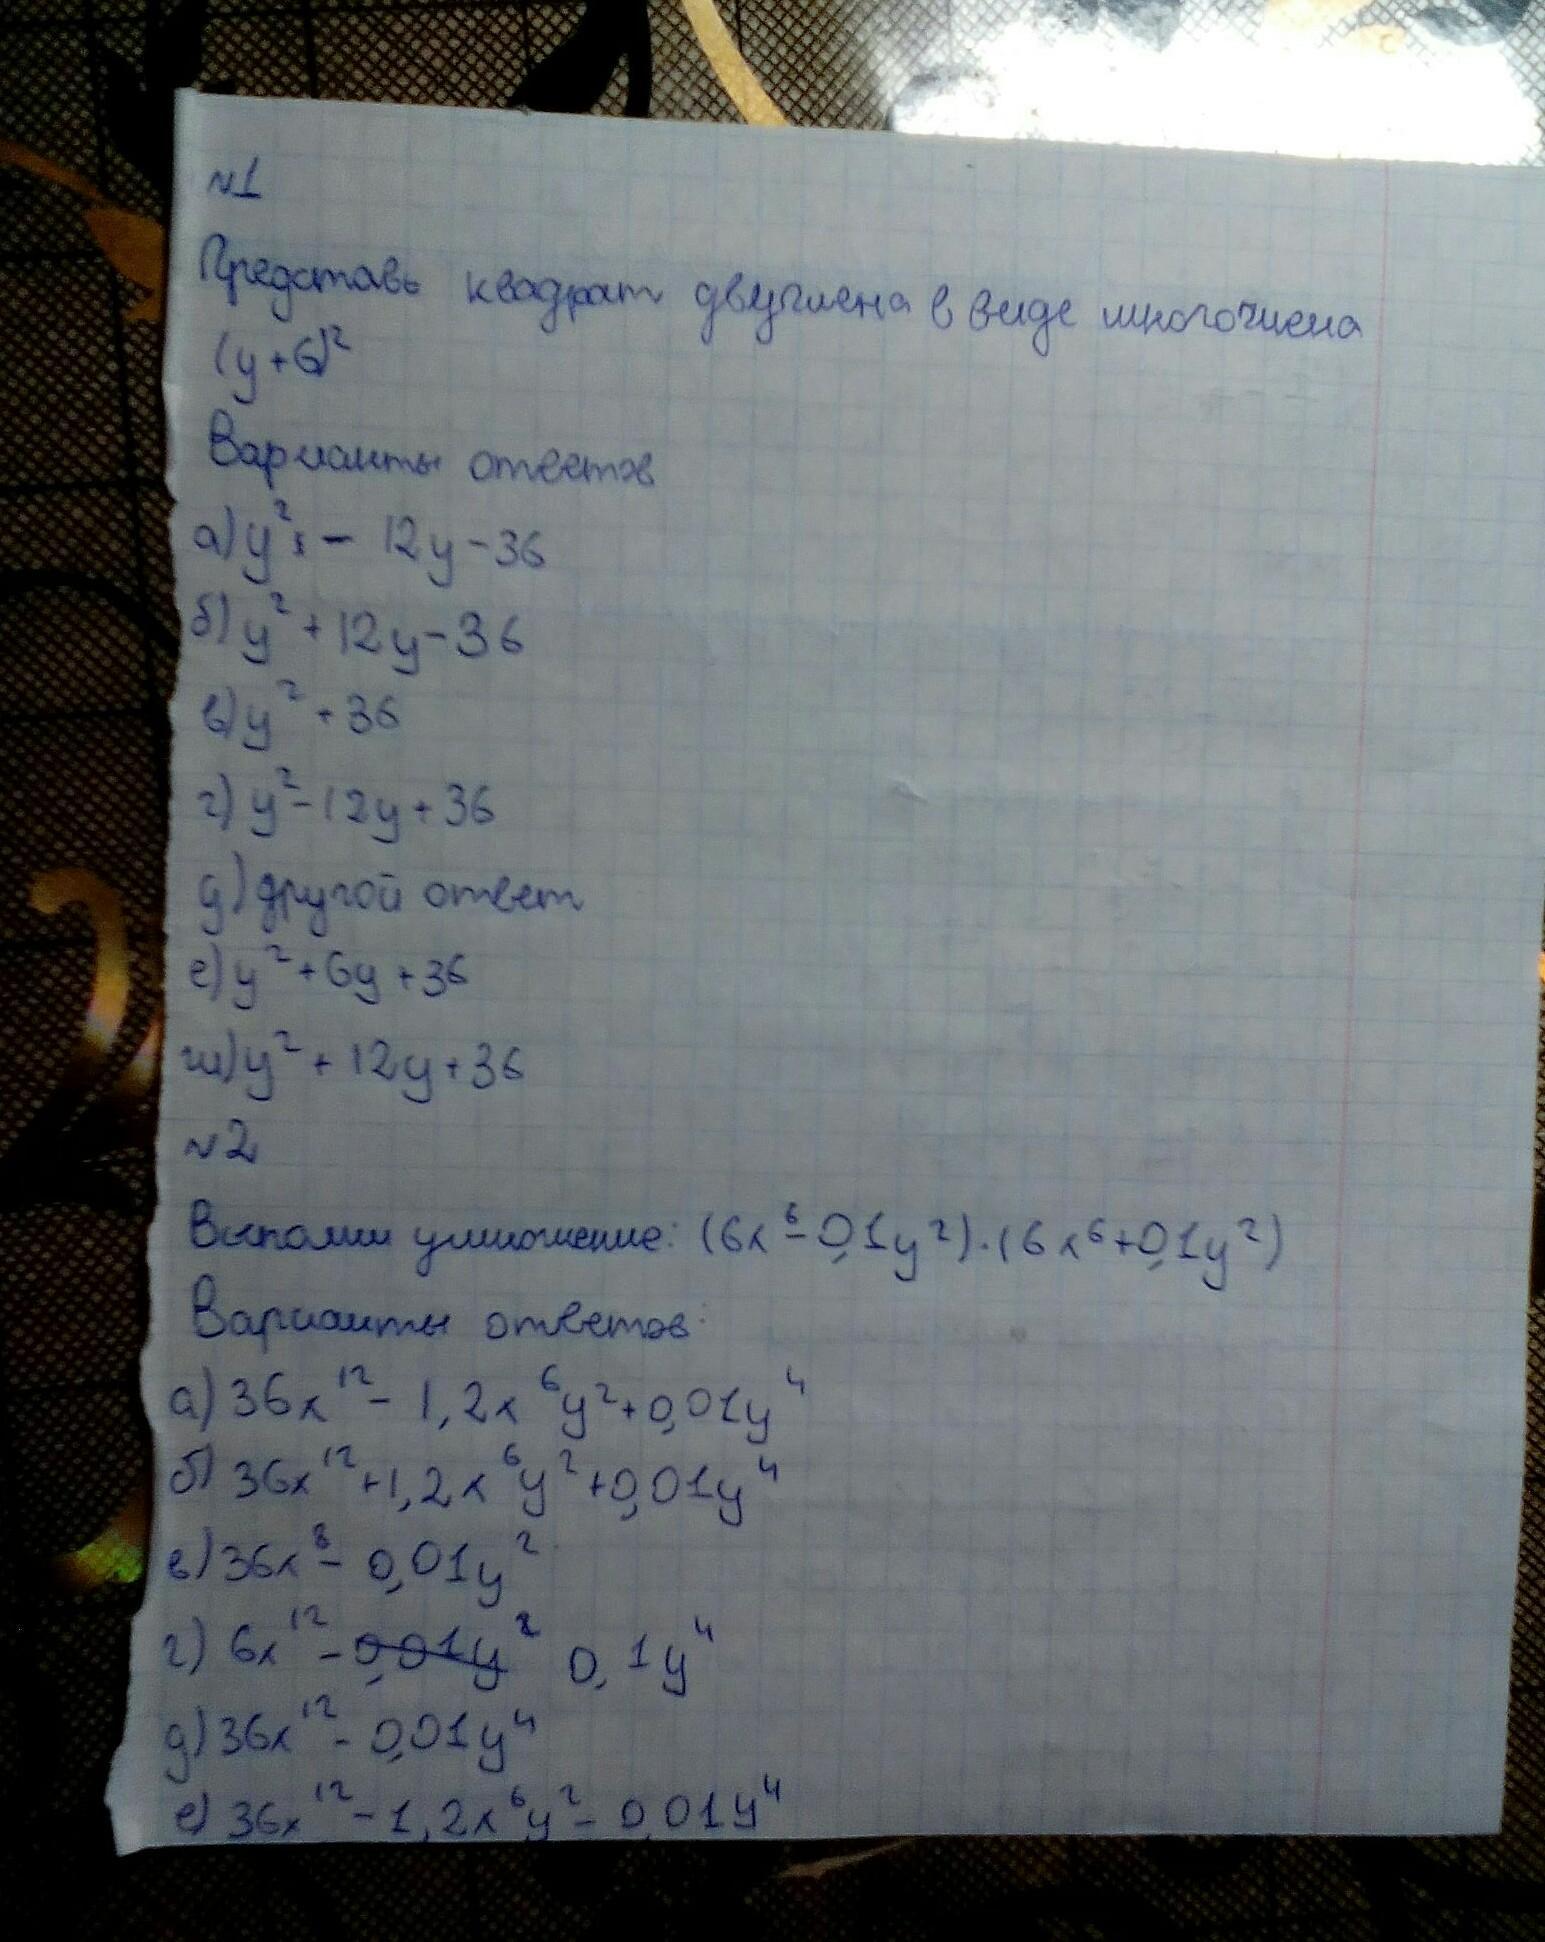 №1
Представь квадрат двучлена в виде многочлена
(y+6)²
Варианты ответов
а) y² - 12y - 36
б) y² + 12y - 36
в) y² + 36
г) y² - 12y + 36
д) другой ответ
е) y² + 6y + 36
ж) y² + 12y + 36
№2
Выполни умножение: (6x⁶ - 0,1y²)·(6x⁶ + 0,1y²)
Варианты ответов:
а) 36x¹² - 1,2x⁶y² + 0,01y⁴
б) 36x¹² + 1,2x⁶y² + 0,01y⁴
в) 36x⁸ - 0,01y²
г) 6x¹² - 0,01y² 0,1y⁴
д) 36x¹² - 0,01y⁴
е) 36x¹² - 1,2x⁶y² - 0,01y⁴